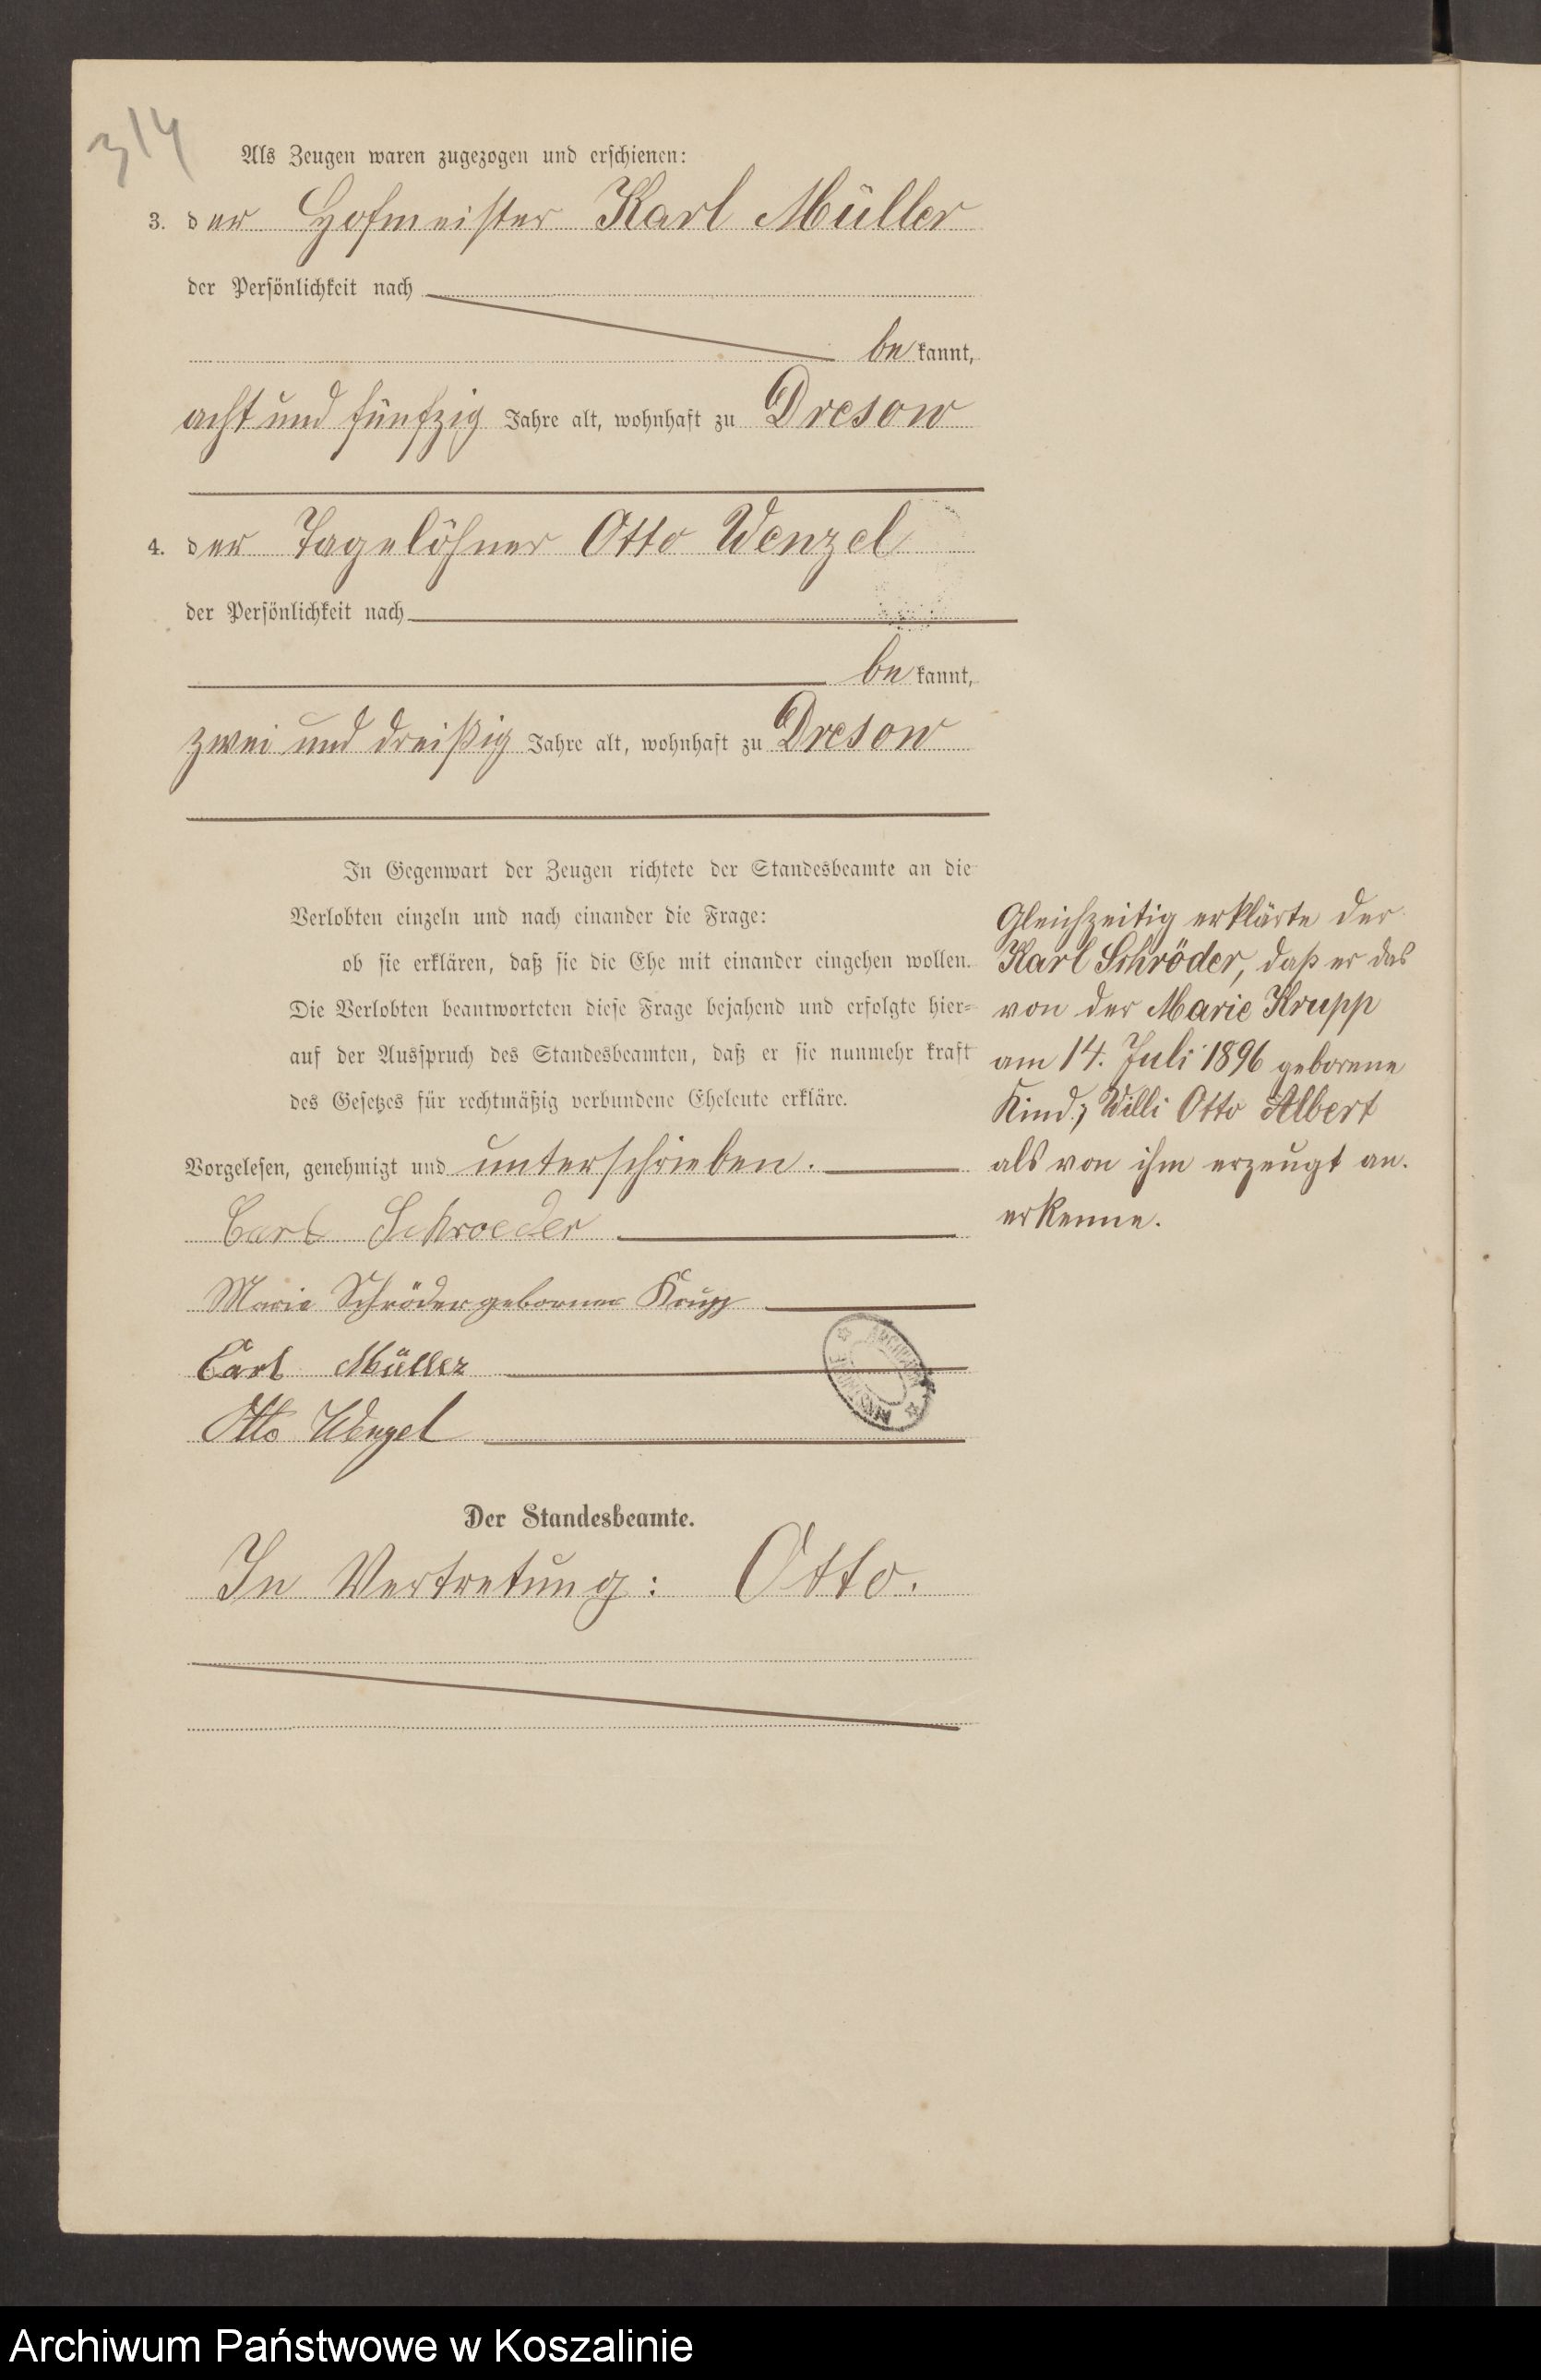 314
Als Zeugen waren zugezogen und erschienen:
3. der Hofmeister Karl Müller
der Persönlichkeit nach
bekannt,
acht und fünfzig Jahre alt, wohnhaft zu Dresow
4. der Tagelöhner Otto Wenzel
der Persönlichkeit nach
bekannt,
zwei und dreißig Jahre alt, wohnhaft zu Dresow
In Gegenwart der Zeugen richtete der Standesbeamte an die
Verlobten einzeln und nach einander die Frage:
ob sie erklären, daß sie die Ehe mit einander eingehen wollen.
Die Verlobten beantworteten diese Frage bejahend und erfolgte hier-
auf der Ausspruch des Standesbeamten, daß er sie nunmehr kraft
des Gesetzes für rechtmäßig verbundene Eheleute erkläre.
Vorgelesen, genehmigt und unterschrieben.
Carl Schroeder
Marie Schröder geborene Krupp
Carl Müller
Otto Wenzel
Der Standesbeamte.
In Vertretung: Otto.
Gleichzeitig erklärte der
Karl Schröder, daß er das
von der Marie Krupp
am 14. Juli 1896 geborene
Kind, Willi Otto Albert
als von ihm erzeugt an.
erkenne.
Archiwum Państwowe w Koszalinie